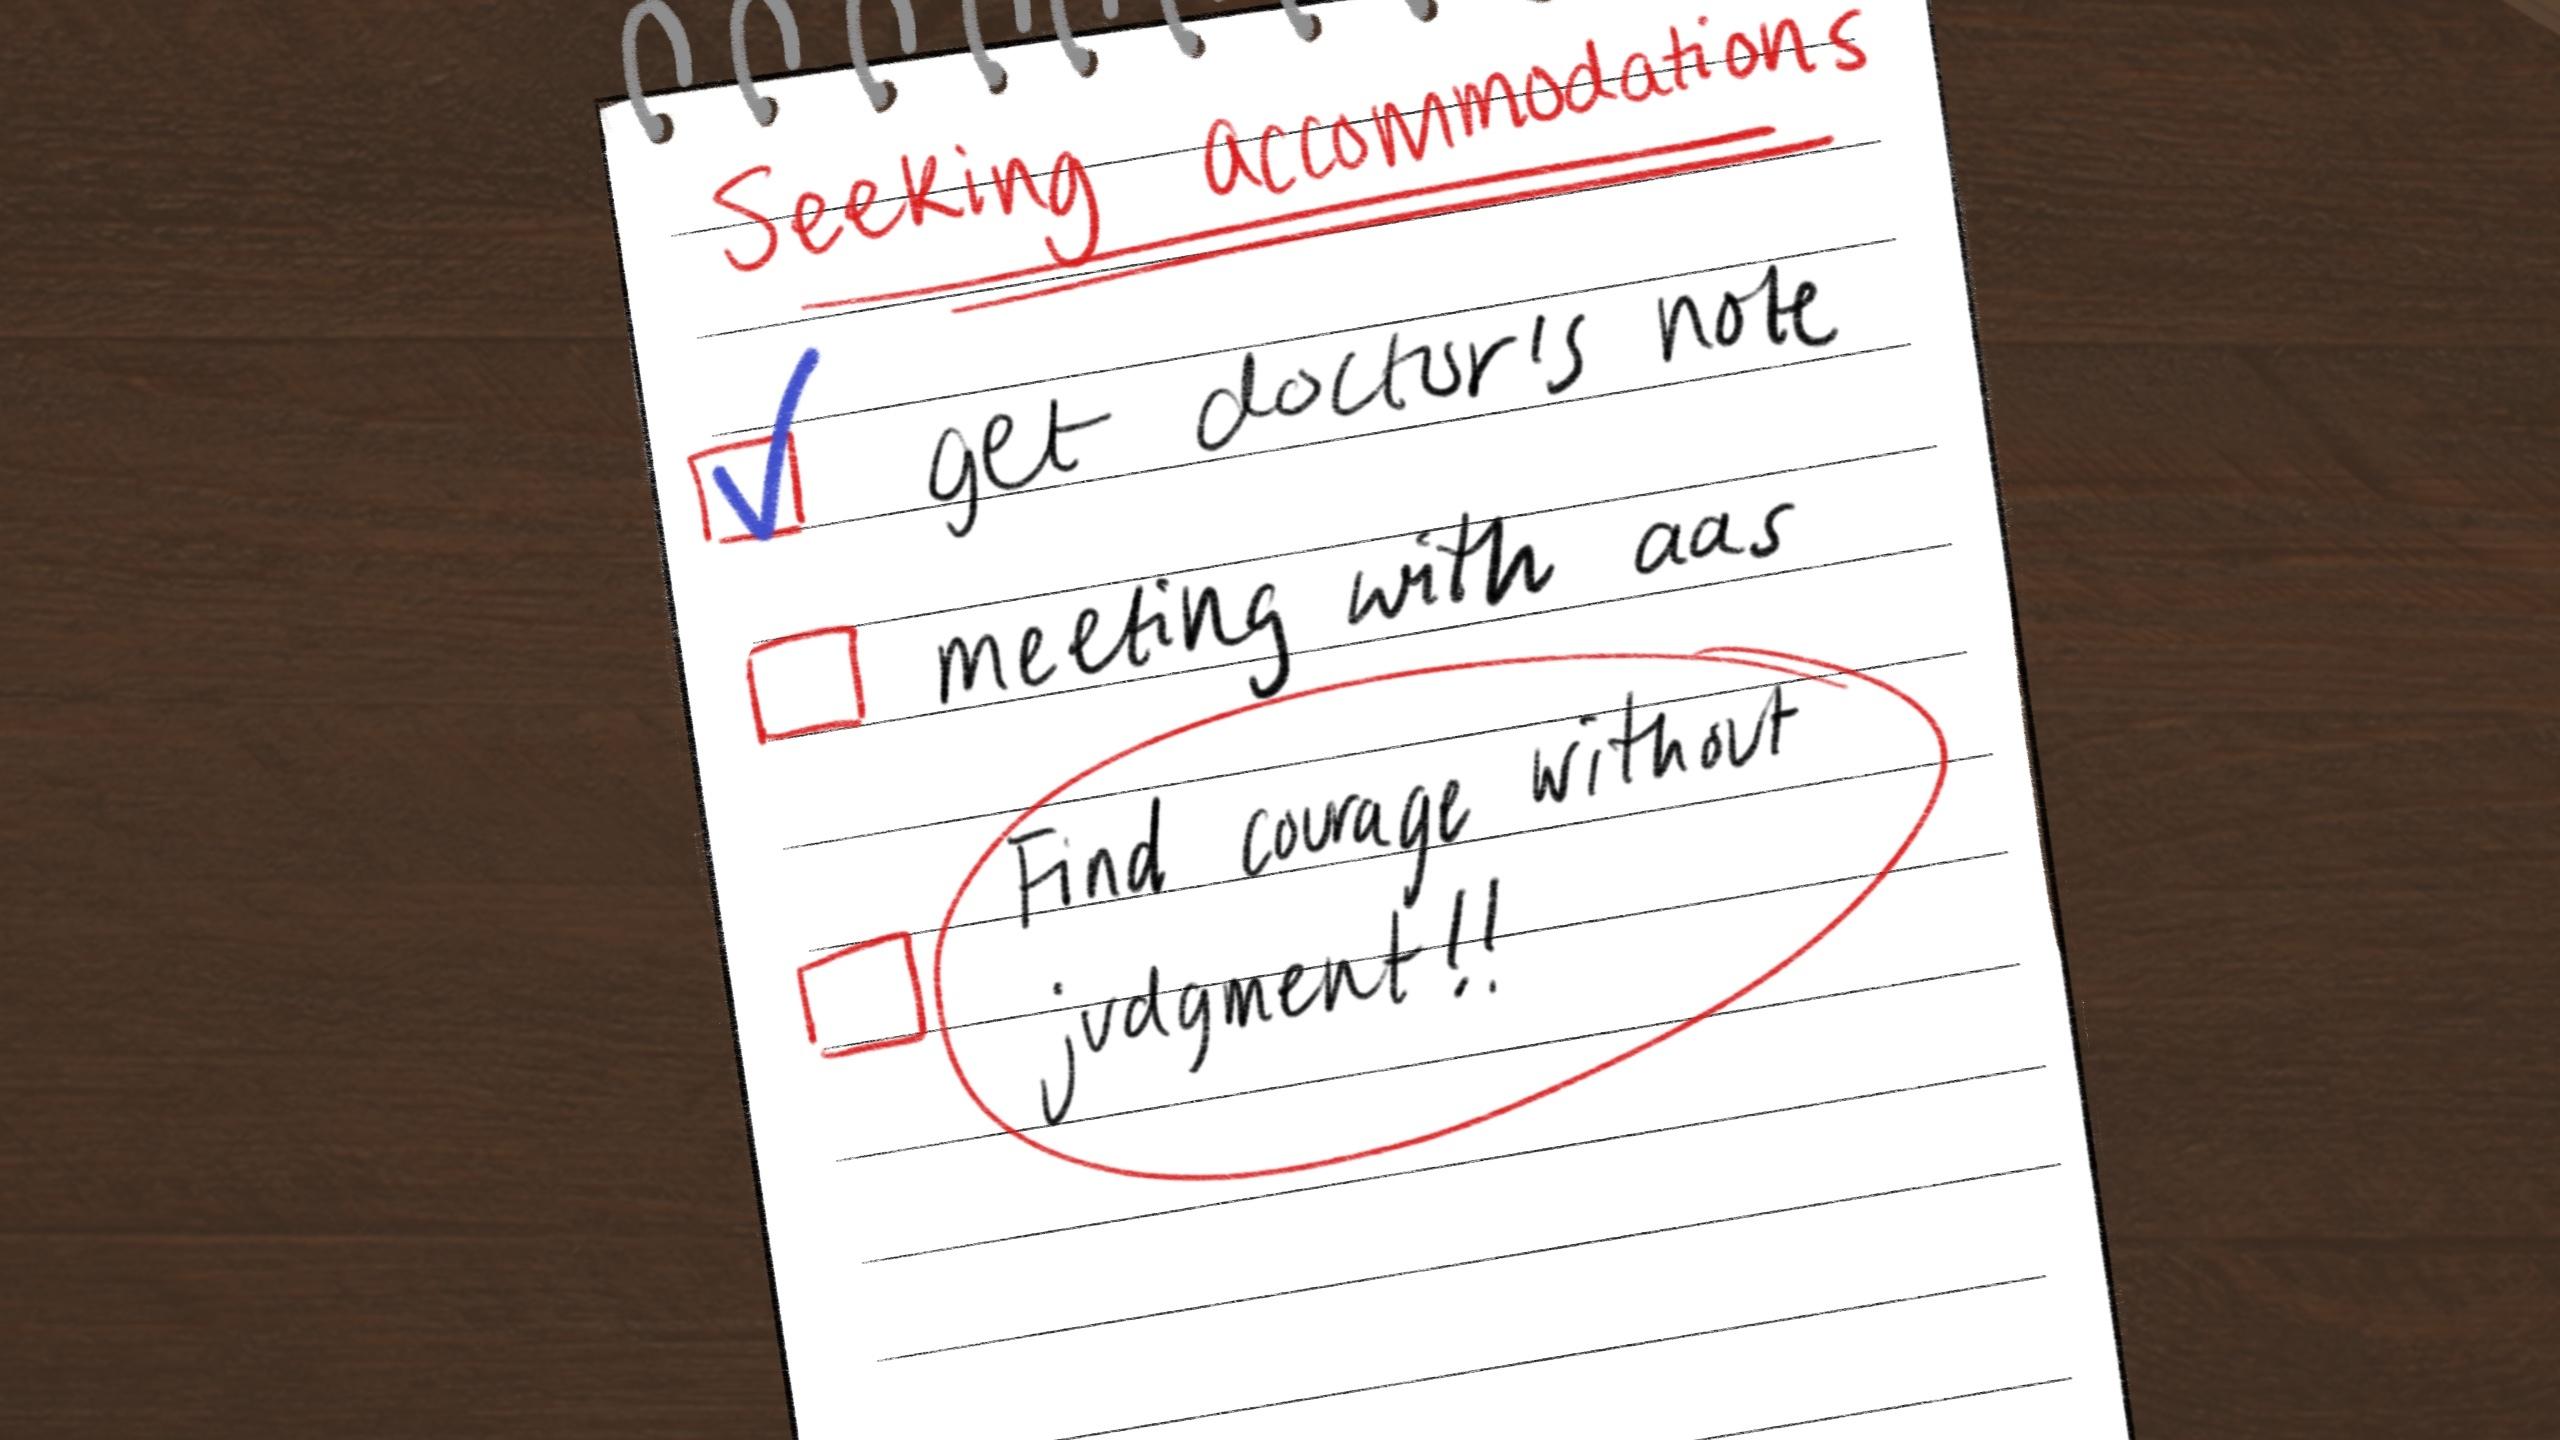 Seeking accommodations
get doctor's note
meeting with aas
Find courage without
judgment!!